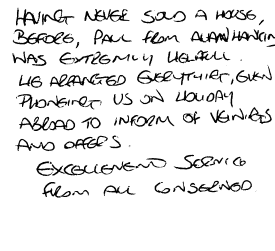 HAVING NEVER SOLD A HOUSE,
BEFORE, PAUL FROM ALAN HAWKIN
WAS EXTREMELY HELPFUL.
HE ARRANGED EVERYTHING, EVEN
PHONEING US ON HOLIDAY
ABROAD TO INFORM OF VEIWINGS
AND OFFERS.
EXCELLENENT SERVICE
FROM ALL CONSERNED.